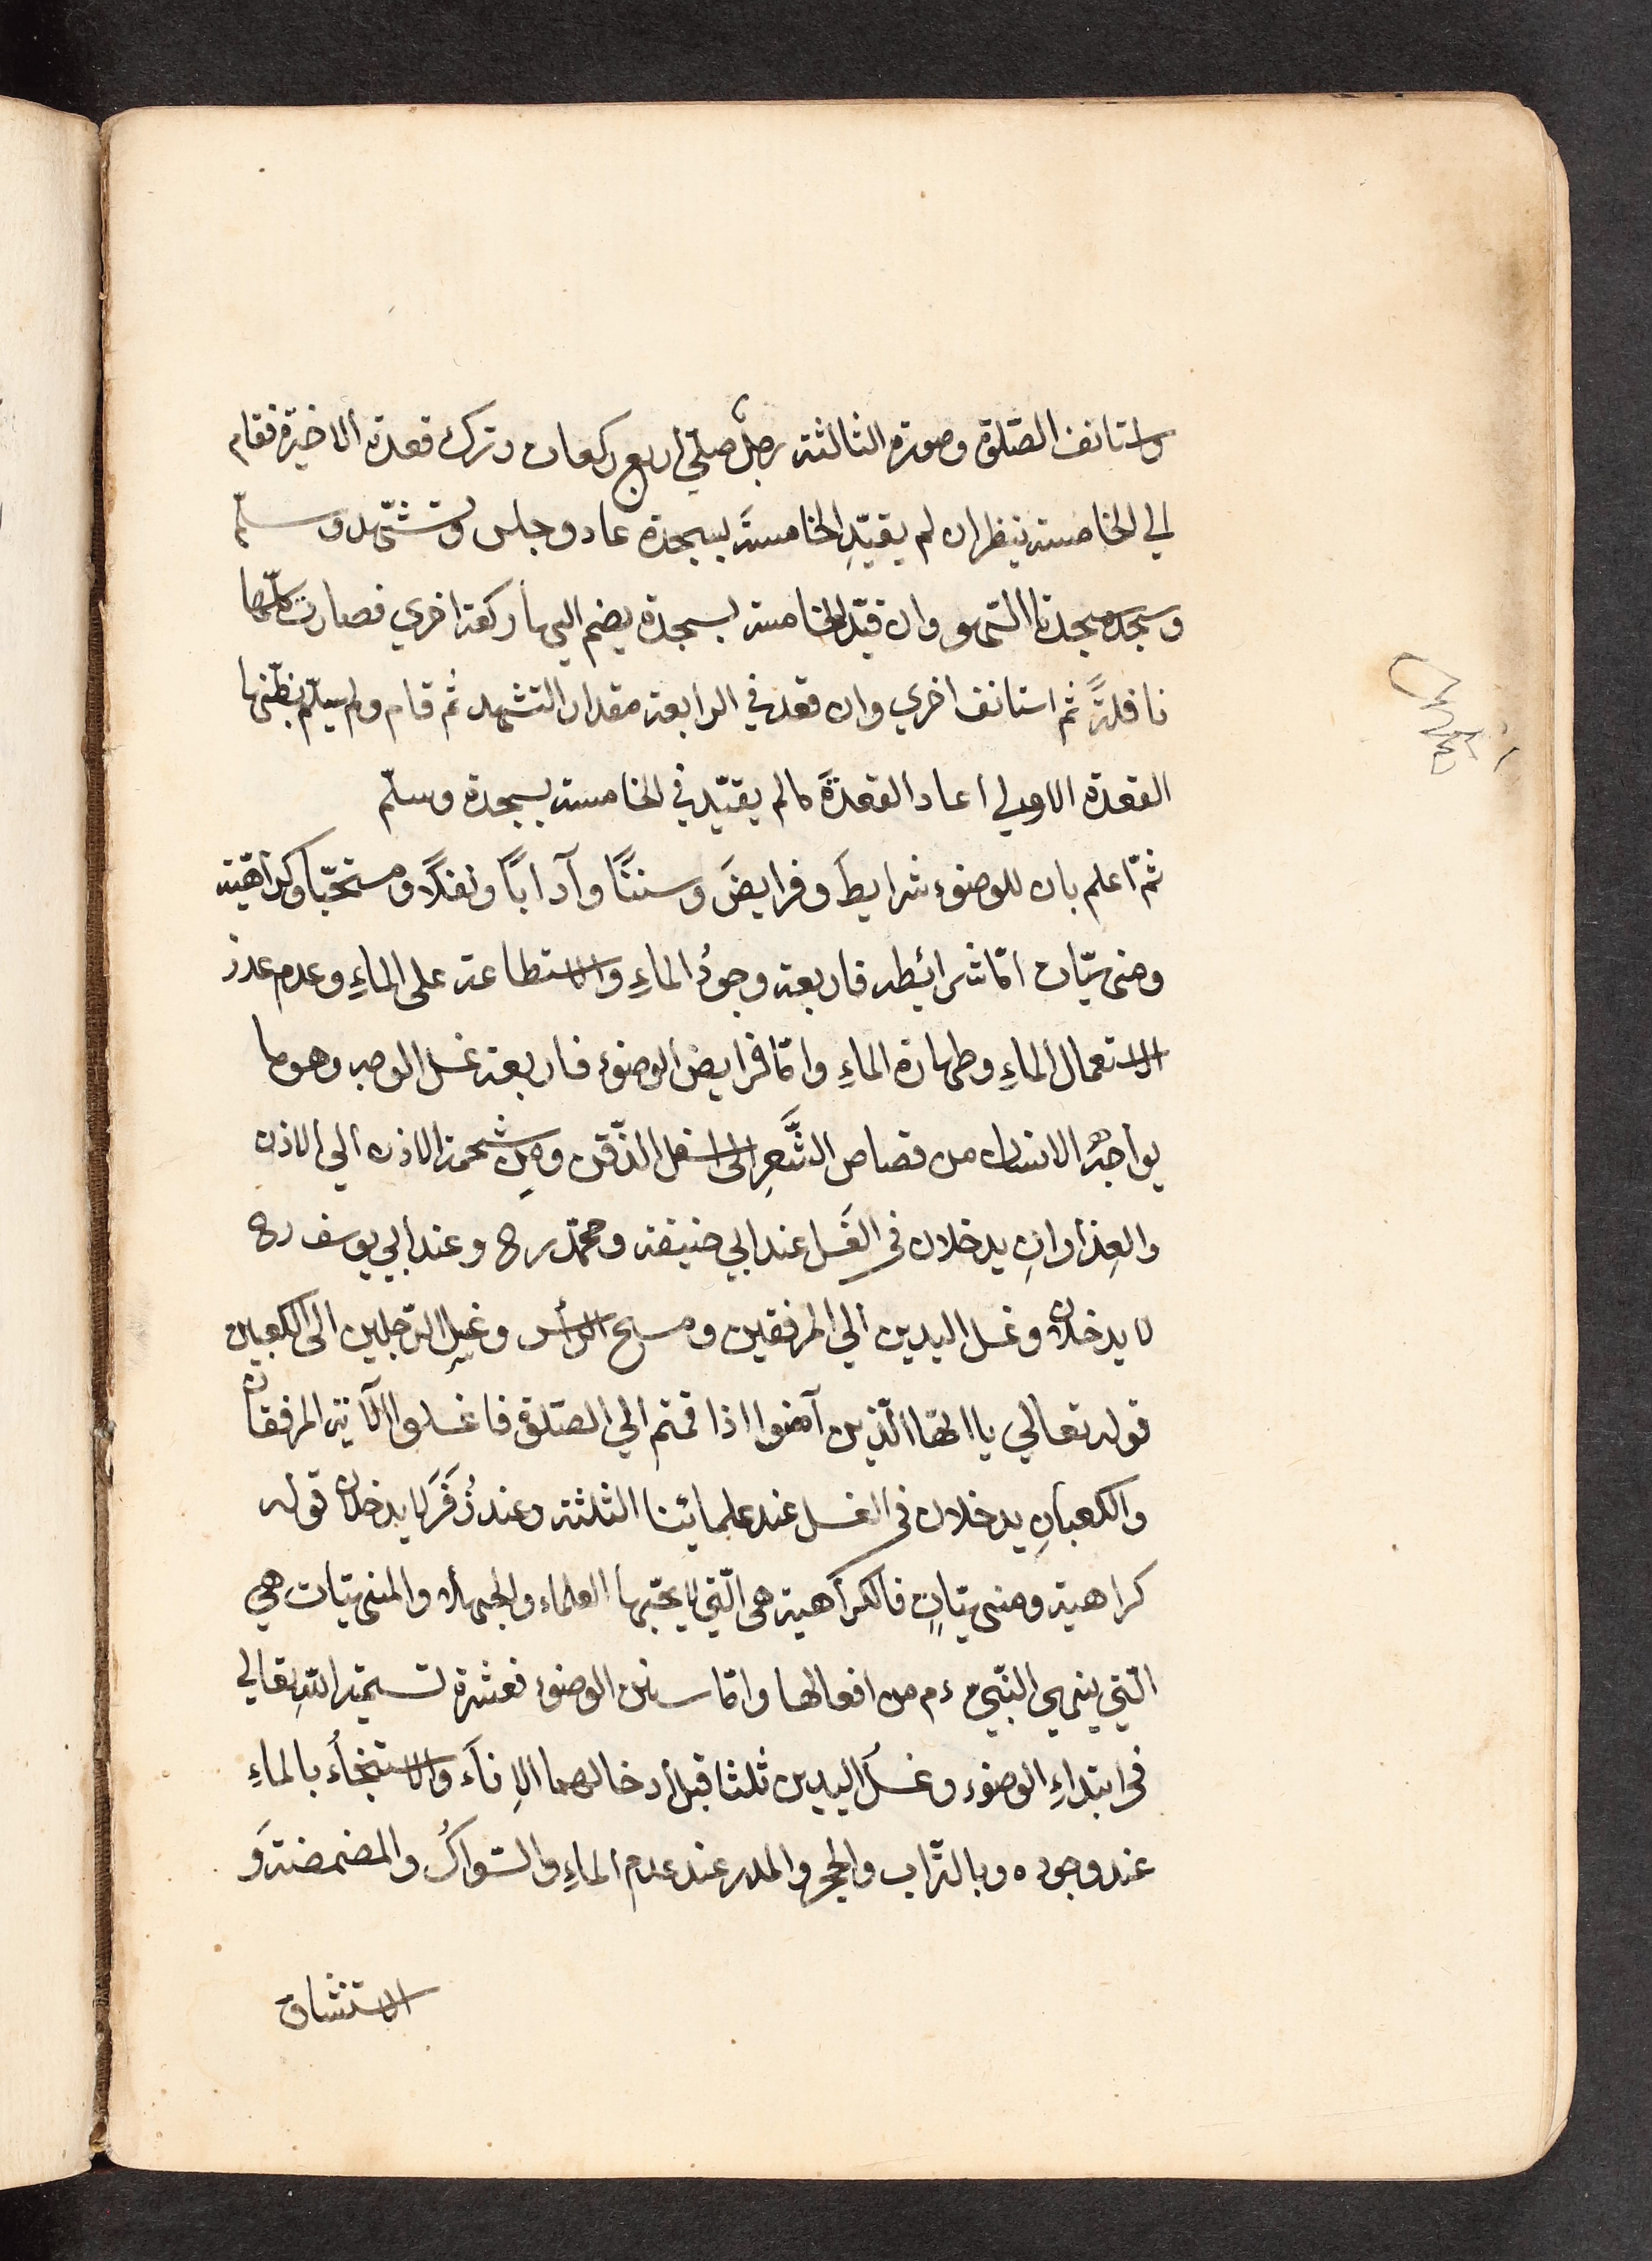 واستانف الصّلوة وصورة الثالثة رجل صلّي اربع ركعات وترك قعدة الاخيرة فقام
الي الخامسة ينظر ان لم يقيّدِ الخامسةَ بسجدة عاد وجلس وتشهّد وسلّم
وسجد سجدتا السّهو وان قيّد الخامسة بسجدة يضم اليها ركعة اخري فصارت كلّها
نافلةً ثم استانف اخري وان قعد في الرابعة مقدار التشهد ثم قام ولم يسلّم بظنّها
القعدة الاولي اعاد القعدةَ مالم يقيّد في الخامسة بسجدة وسلّم
ثمّ اعلم بان للوضوء شرايطَ وفرايضَ وسننًا وآدابًا ونفلًا ومستحبّا وكراهّية
ومنهيّات امّا شرائطه فاربعة وجودُ الماءِ والاستطاعة على الماءِ وعدم عذر
الاستعمال الماءِ وطهارة الماءِ وامّا فرايض الوضوء فاربعة غسل الوجه وهو ما
يواجهُ الانسان من قصاص الشَّعرِ الى اسفل الذّقن ومِن شحمة الاذن الي الاذن
والعِذاوانِ يدخلان فى الغَسل عند ابي حنيفة ومحمّد رح وعند ابي يوسف رح
لا يدخلان وغسل اليدين الي المرفقين ومسح الرأس وغسلِ الرّجلين الى الكعبين
قوله تعالي يا ايّها الّذين آمنوا اذا قمتم الي الصّلوة فاغسلوا الآية المرفقان
والكعبانِ يدخلان فى الغسل عند علمائنا الثلثة وعند زُفَرَ لا يدخلان قوله
كراهية ومنهيّاتٍ فالكراهية هى الّتي لا يحبّها العلماء والجهلاء والمنهيّات هي
الّتي ينهي النّبيّ ءم من افعالها وامّا سنن الوضوء فعشرة تسميّة اللّهِ تعالي
فى ابتداءِ الوضوء وغسلُ اليدين ثلثا قبل ادخالهما الاِناَء والاستنجاُء بالماءِ
عند وجوده وبالتّراب والحجر والمدر عند عدم الماءِ والسّواكُ والمضمضةَ و
الاستنشاق